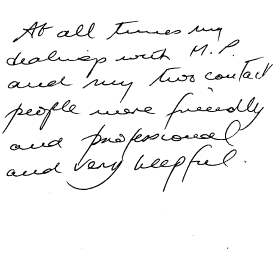 At all times my
dealings with M.P.
and my two contact
people were friendly
and professional
and very helpful.